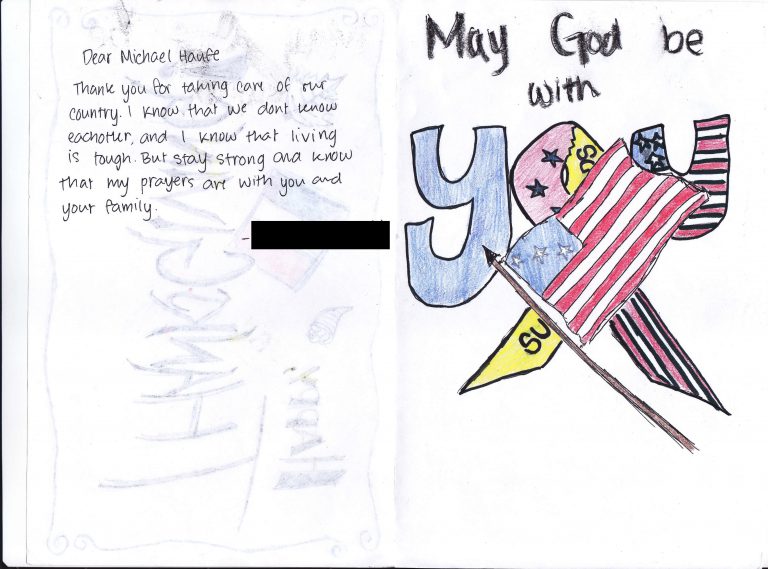 Dear Michael Haufe
Thank you for taking care of our
country. I know that we dont know
eachother, and I know that living
is tough. But stay strong and know
that my prayers are with you and
your family.
-
May God be
with
you
SU